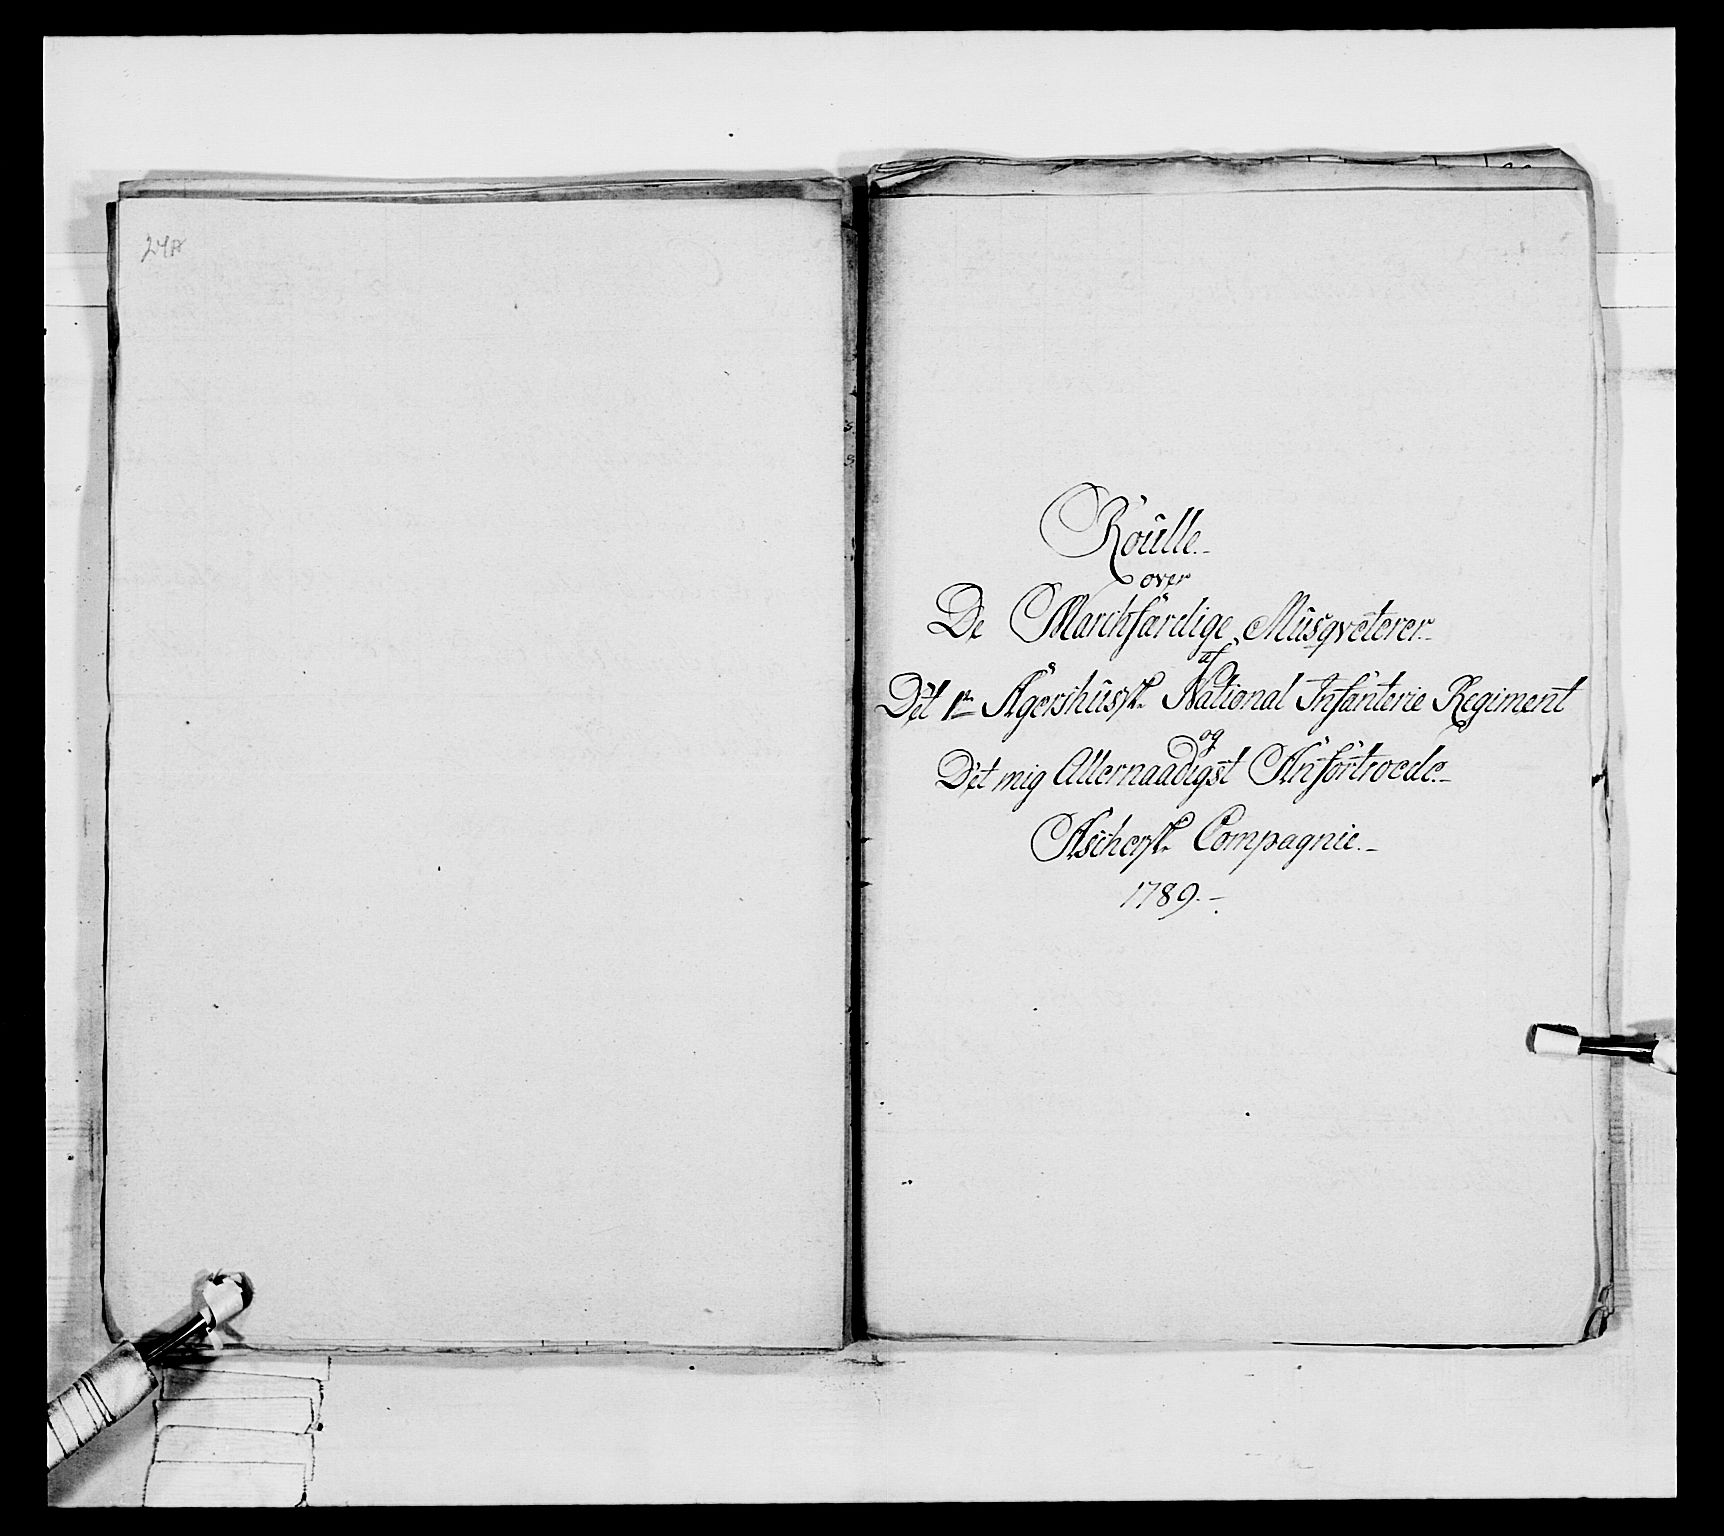 Roülle.-
over
De Marchfärdige Müsqveterer.-
af
Det 1te Agershüsisk. National Infanterie Regiment
og
Det mig Allernaadigst Anförtroede.-
Aschersk. Compagnie.-
1789.-